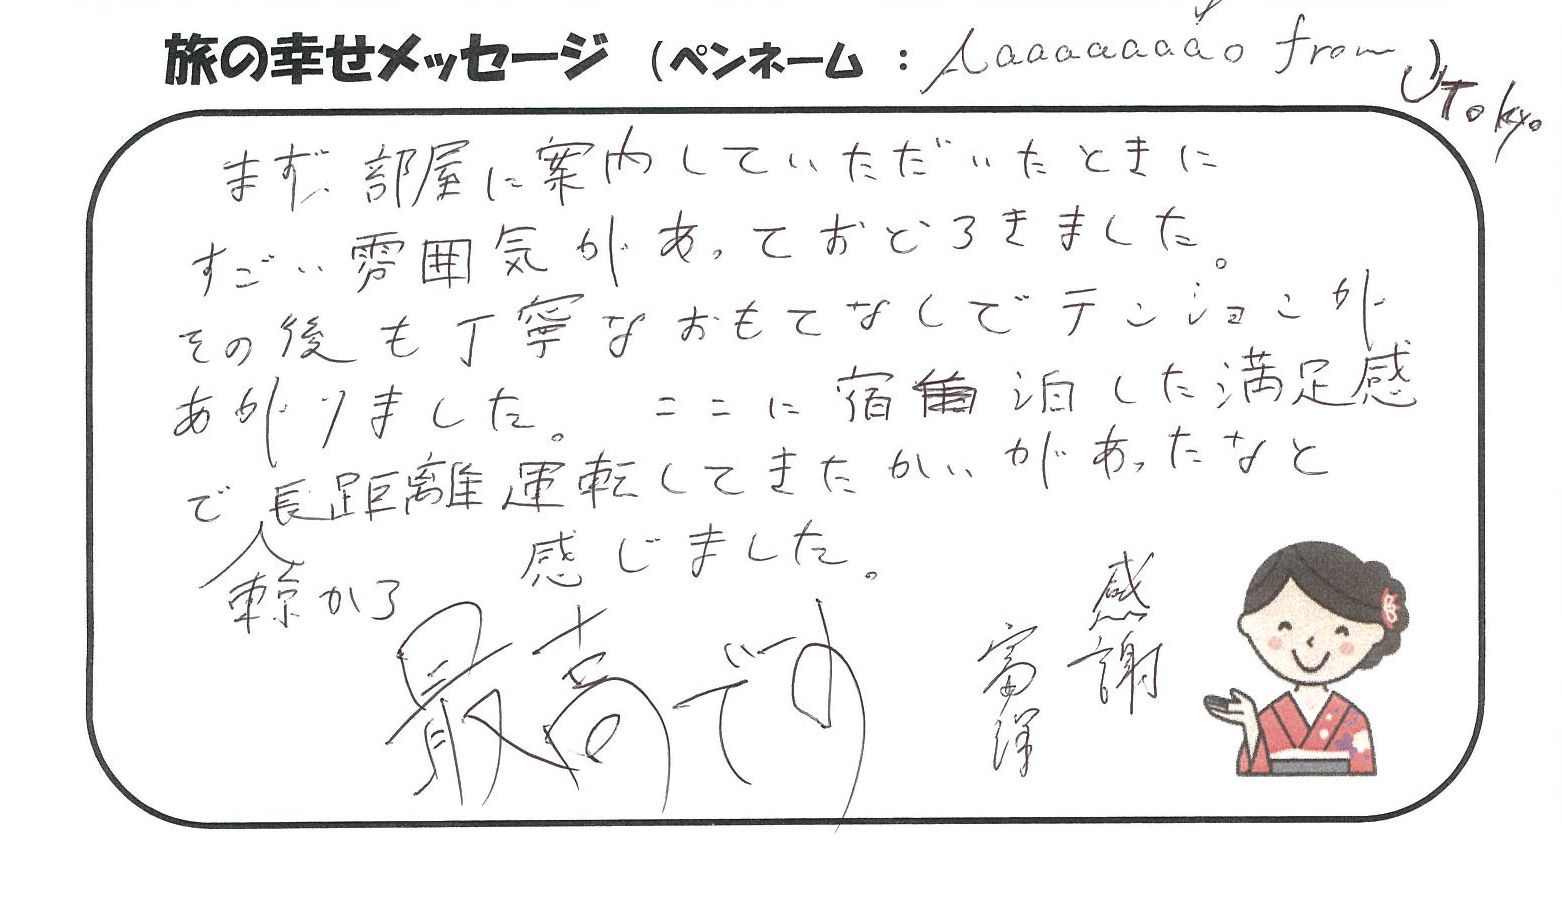 旅の幸せメッセージ (ペンネーム : Aaaaaaaao from Tokyo)
まず、部屋に案内していただいたときに
すごい雰囲気があっておどろきました。
その後も丁寧なおもてなしでテンションが
あがりました。ここに宿泊した満足感
で長距離運転してきたかいがあったなと
東京から
感じました。
最高です
感謝